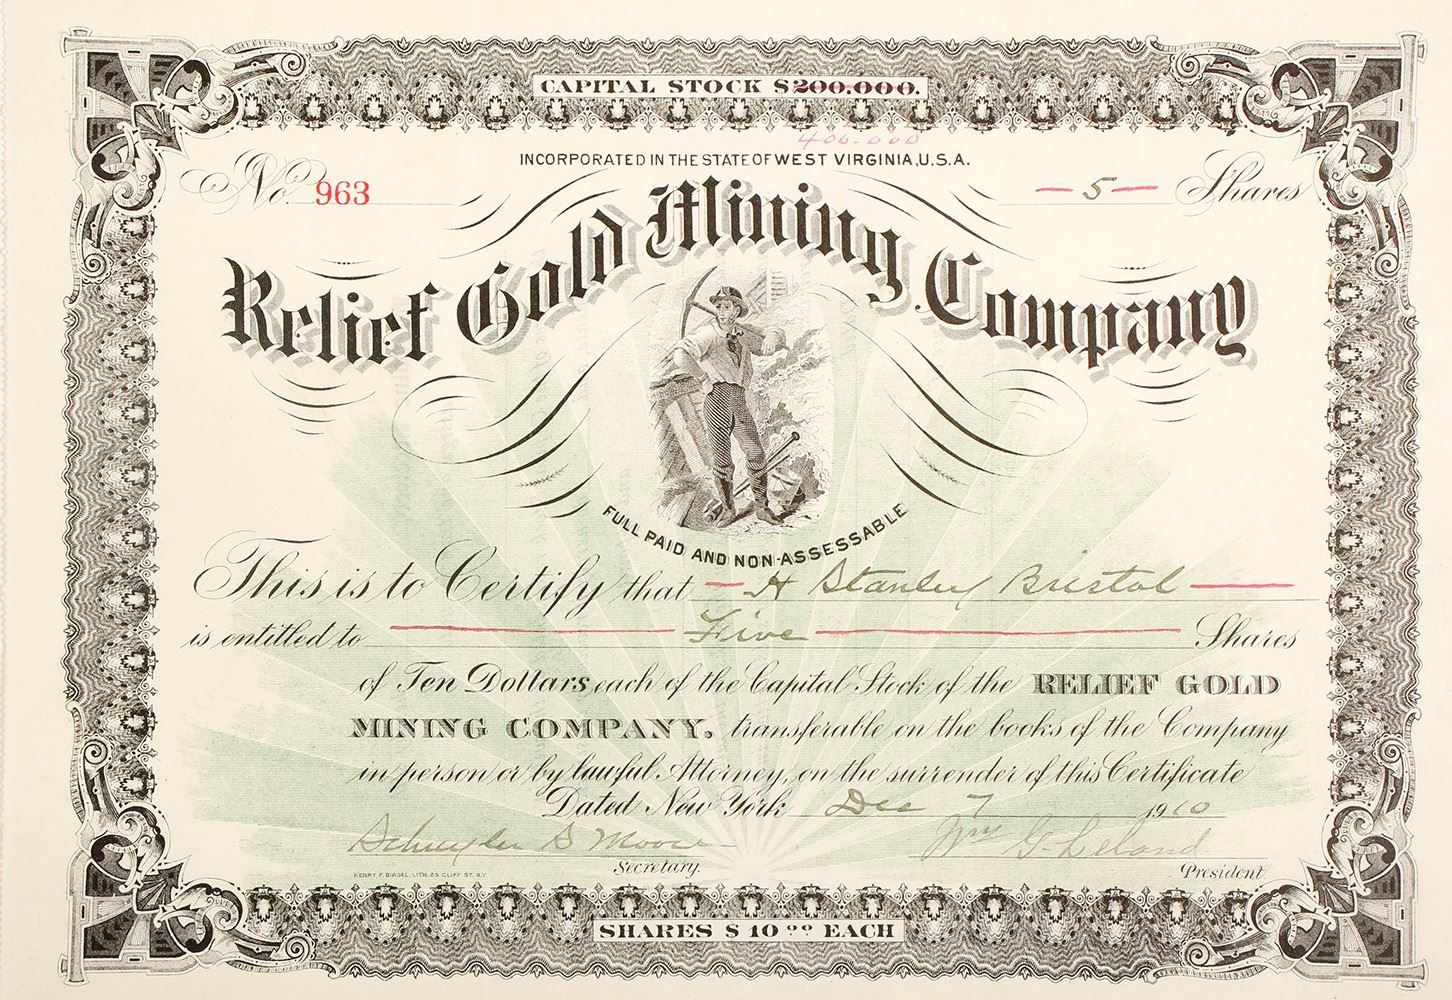 CAPITAL STOCK $200.000.
400.000
INCORPORATED IN THE STATE OF WEST VIRGINIA, U.S.A.
No. 963
— 5 — Shares
Relief Gold Mining Company
FULL PAID AND NON-ASSESSABLE
This is to Certify that — H Stanley Bristol —
is entitled to — Five — Shares
of Ten Dollars each of the Capital Stock of the RELIEF GOLD
MINING COMPANY, transferable on the books of the Company
in person or by lawful Attorney, on the surrender of this Certificate
Dated New York Dec 7 1910
Schuyler S Moore Wm G. Leland
Secretary. President
HENRY F. BIRGEL. LITH. 25 CLIFF ST. N.Y.
SHARES $10 00 EACH